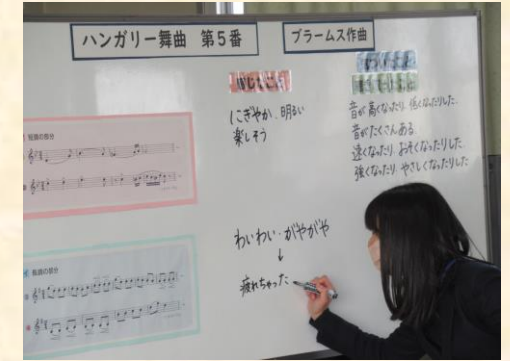 ハンガリー舞曲 第5番
ブラームス作曲
感じたこと
にぎやか、明るい
楽しそう
音が高くなったり、低くなったりした。
音がたくさんある。
速くなったり、おそくなったりした。
強くなったり、やさしくなったりした
短調の部分
わいわい・がやがや
↓
疲れちゃった
長調の部分